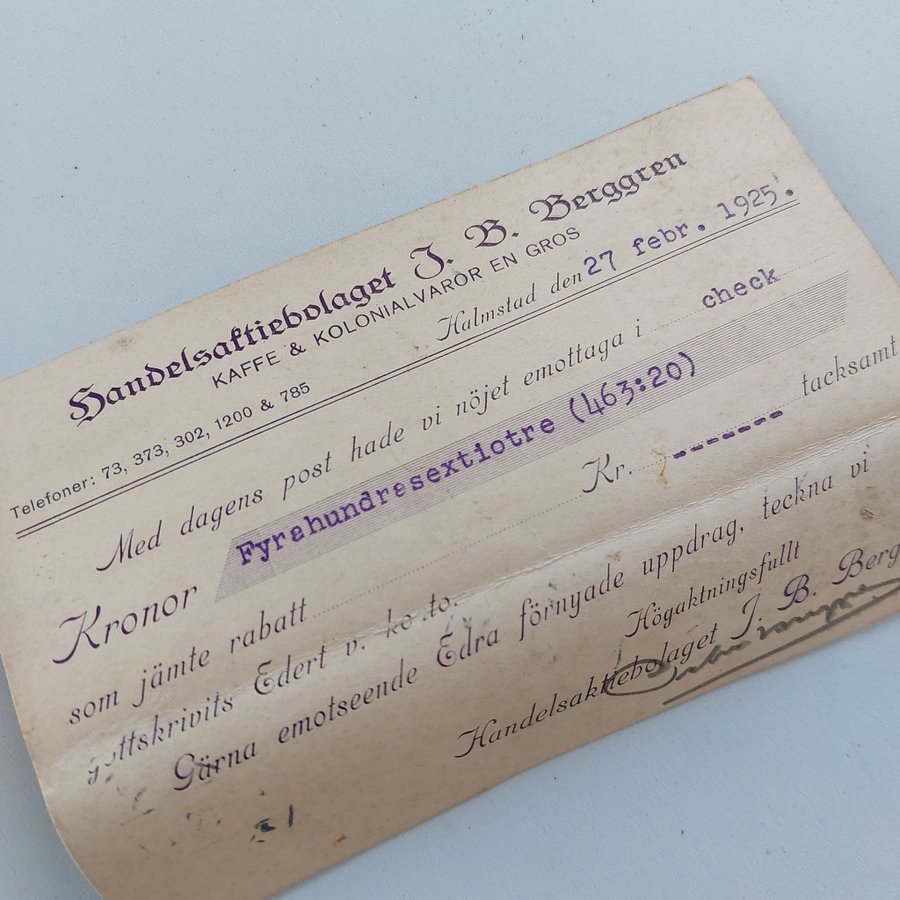 Handelsaktiebolaget J. B. Berggren
KAFFE & KOLONIALVAROR EN GROS
Telefoner: 73, 373, 302, 1200 & 785
Halmstad den 27 febr. 1925.
Med dagens post hade vi nöjet emottaga i check
Kronor Fyrahundrasextiotre (463:20)
som jämte rabatt Kr. ------- tacksamt
gottskrivits Edert v. ko.to.
Gärna emotseende Edra förnyade uppdrag, teckna vi
Högaktningsfullt
Handelsaktiebolaget J. B. Berg